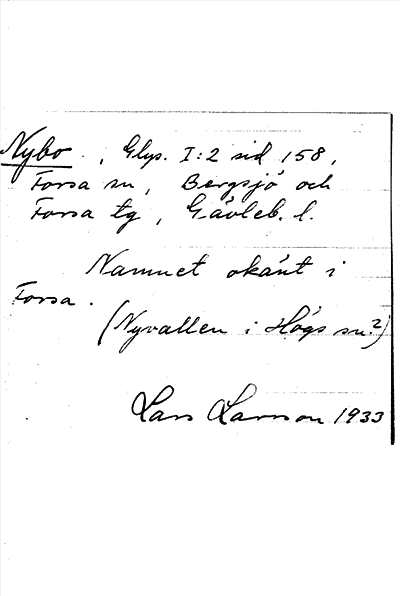 Nybo., Glys. I:2 sid 158,
Forsa sn, Bergsjö och
Forsa tg, Gävleb. l.
Namnet okänt i
Forsa.
(Nyvallen i Högs sn?)
Lars Larsson 1933